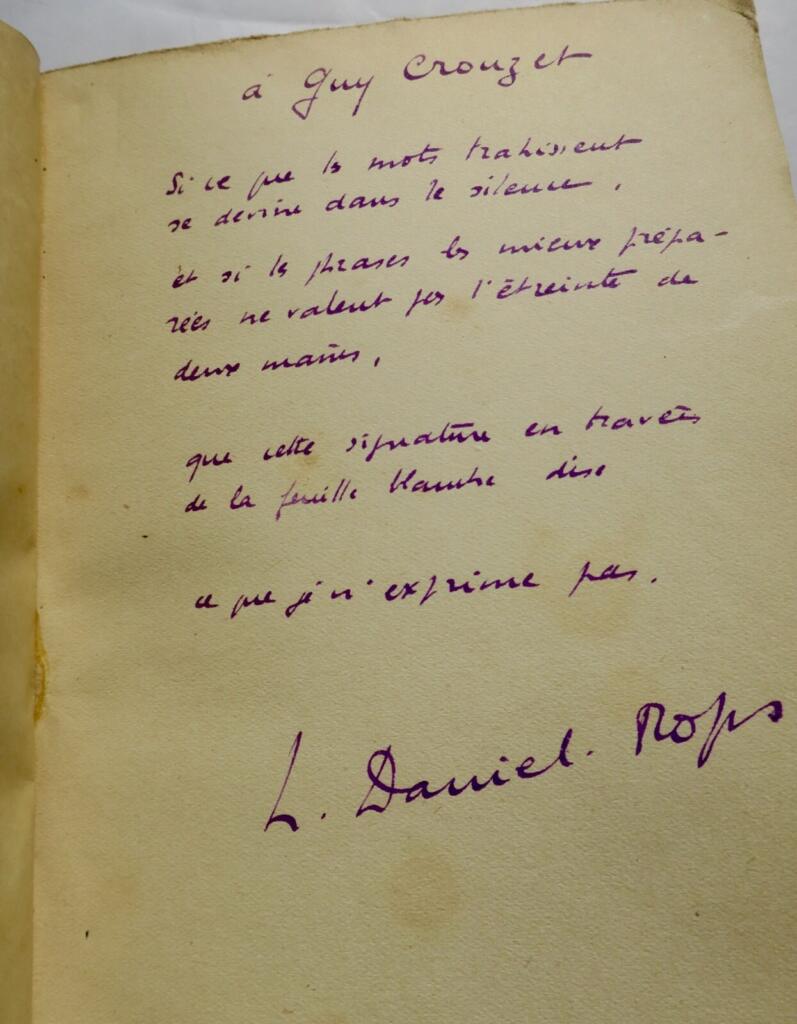 à Guy Crouzet
Si ce que les mots trahissent
se devine dans le silence,
et si les phrases les mieux prépa-
rées ne valent pas l'étreinte de
deux mains,
que cette signature en travers
de la feuille blanche dise
ce que je n'exprime pas.
L. Daniel. Rops